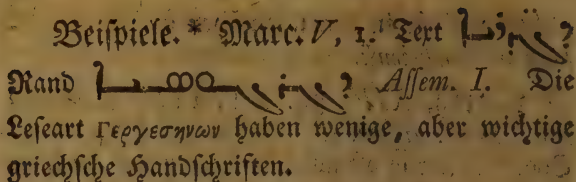 Beiſpiele. * Marc. V, 1. Text ܕܓܕܪ̈ܝܐ
Rand ܕܓܪܓܣܝܐ Aſſem. I. Die
Leſeart Γεργεσηνων haben wenige, aber wichtige
griechſche Handſchriften.